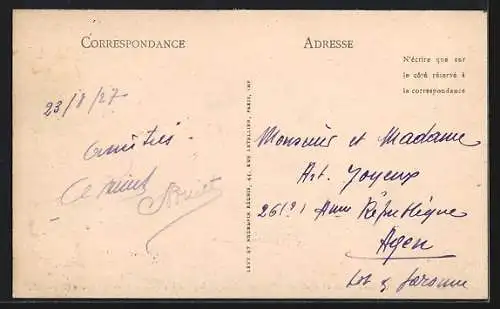 CORRESPONDANCE
ADRESSE
N'écrire que sur
le côté réservé à
la correspondance
23/8/27
Amitiés.
Monsieur et Madame
Art. Joyeux
République
Agen
Lot & Garonne
LEVY ET NEURDEIN RÉUNIS, 44, RUE LETELLIER, PARIS, IMP